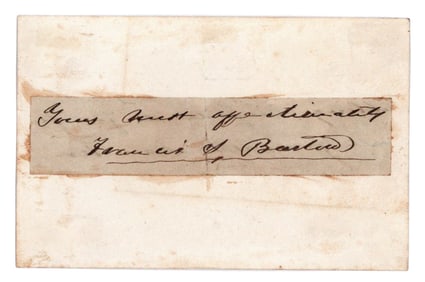 Yours most affectionately
Francis S, Bartow